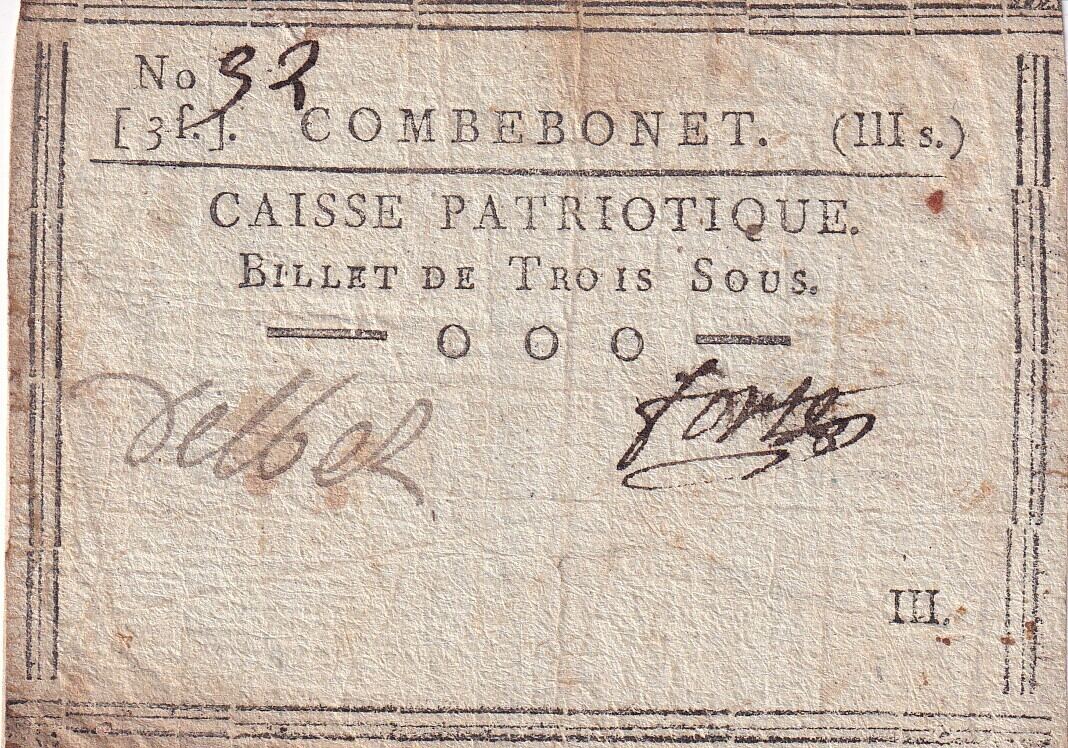 No 92
[3ſ.]. COMBEBONET. (III s.)
CAISSE PATRIOTIQUE.
BILLET DE TROIS SOUS.
O O O
Delbel
III.